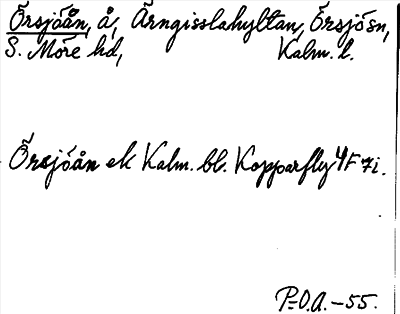 Örsjöån, å, Ärngisslahyltan, Örsjö sn,
S. Möre hd, Kalm. l.
Örsjöån ek Kalm. bl. Kopparfly 4F 7i.
P-O.A. -55.